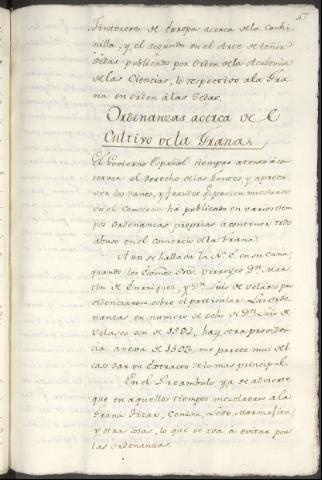 47
Tintoreros de Europa acerca de la Cochi-
nilla, y el segundo en el Arte de teñir
sedas publicado por Orden de la Academia
de las Ciencias, lo respectivo a la Gra-
na en orden á las Sedas.
Ordenanzas acerca de el
Cultivo de la Grana.
El Gobierno Español siempre atento á con-
servar el derecho de las Gentes, y apreca-
ver los daños, y fraudes que pueden mesclarse
en el Comercio há publicado en varios tiem-
pos Ordenanzas propias á contener todo
abuso en el comercio de la Grana.
Aun se hallava la N. E. en su cuna
quando los Exmos. Sres. Virreyes Dn. Mar-
tin de Enrriquez, y Dn. Luis de Velasco pro-
videnciaron sobre el particular. Las orde-
nanzas en numero de ocho de Dn. Luis de
Velasco son de 1592, hay otra providen-
cia anexa de 1593 me parece mui del
caso dar un Extracto de lo mas principal.
En el Preambulo ya se advierte
que en aquellos tiempos mezclavan á la
Grana Tizar, Ceniza, Lodo, Marmajita,
y otras cosas, lo que se iva á evitar por
las ordenanzas.